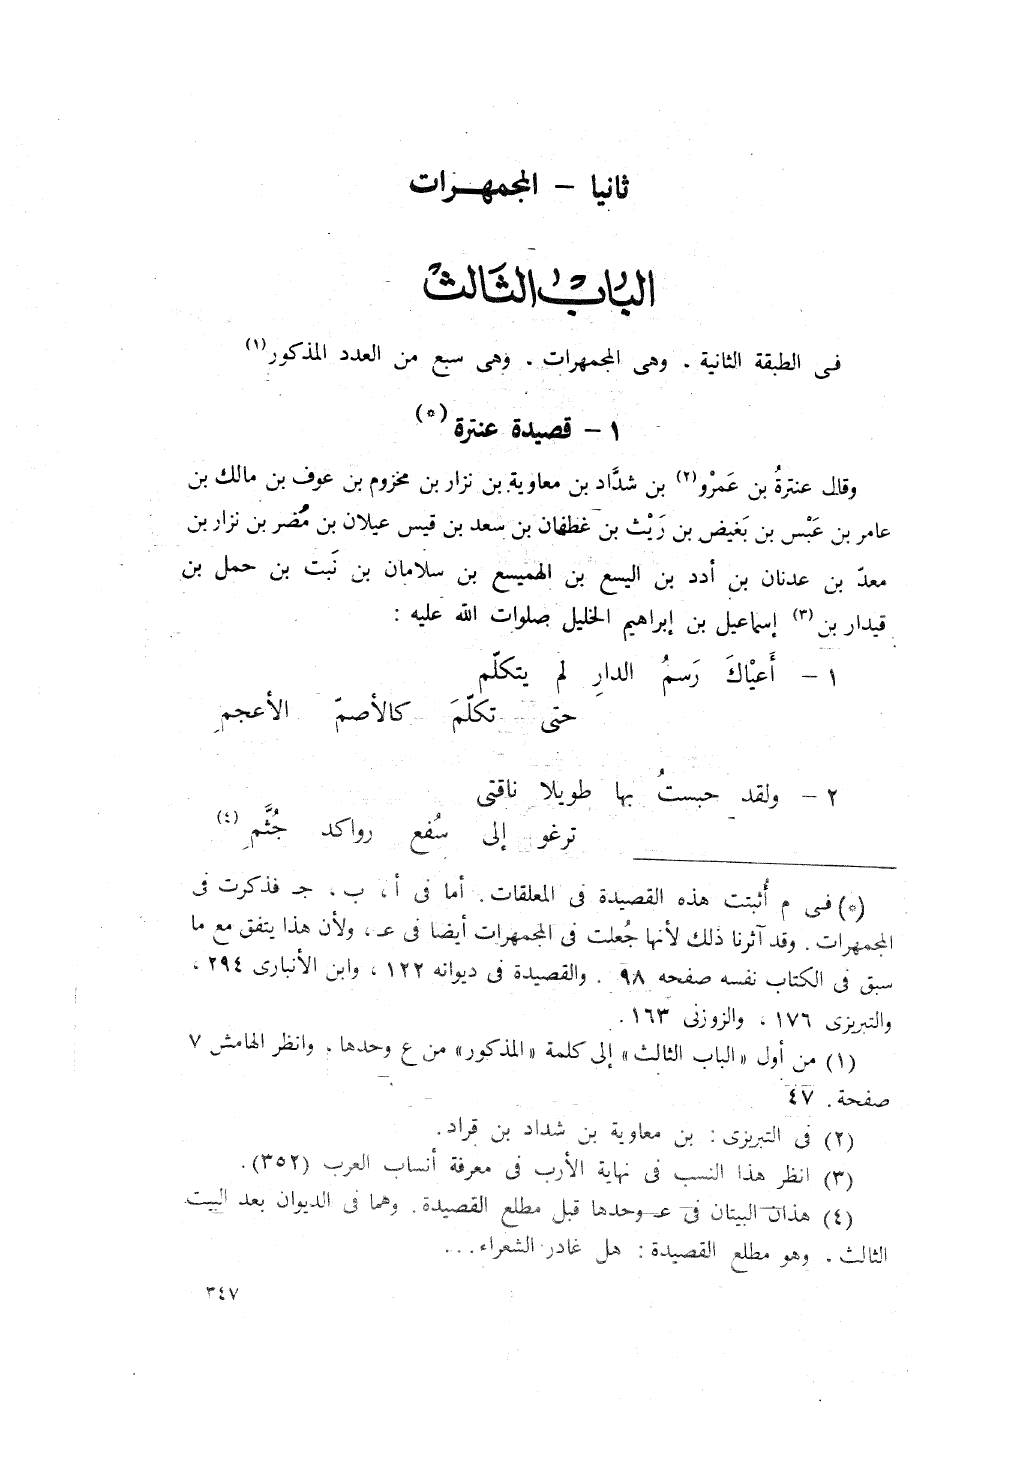 ثانيا – المجمهرات
الباب الثالث
فى الطبقة الثانية . وهى المجمهرات . وهى سبع من العدد المذكور(١)
١ – قصيدة عنترة (*)
وقال عنترةُ بن عَمرْو(٢) بن شدَّاد بن معاوية بن نزار بن مخزوم بن عوف بن مالك بن
عامر بن عَبْس بن بَغيض بن رَيْث بن غطفان بن سعد بن قيس عيلان بن مُضر بن نزار بن
معدّ بن عدنان بن أدد بن اليسع بن الهميسع بن سلامان بن نَبت بن حمل بن
قيدار بن(٣) إسماعيل بن إبراهيم الخليل صلوات الله عليه :
١ – أَعيْاكَ رَسمُ الدارِ لم يتكلّم
حتى تكلّمَ كالأصمّ الأعجمِ
٢ – ولقد حبستُ بها طويلا ناقتى
ترغو إلى سُفع رواكد جُثَّمِ (٤)
(*) فى م أُثبتت هذه القصيدة فى المعلقات . أما فى أ ، ب ، جـ فذكرت فى
المجمهرات . وقد آثرنا ذلك لأنها جُعلت فى المجمهرات أيضا فى عـ ، ولأن هذا يتفق مع ما
سبق فى الكتاب نفسه صفحه ٩٨ . والقصيدة فى ديوانه ١٢٢ ، وابن الأنبارى ٢٩٤ ،
والتبريزى ١٧٦ ، والزوزنى ١٦٣ .
(١) من أول «الباب الثالث» إلى كلمة «المذكور» من ع وحدها . وانظر الهامش ٧
صفحة . ٤٧
(٢) فى التبريزى : بن معاوية بن شداد بن قراد .
(٣) انظر هذا النسب فى نهاية الأرب فى معرفة أنساب العرب (٣٥٢) .
(٤) هذان البيتان فى عـ وحدها قبل مطلع القصيدة . وهما فى الديوان بعد البيت
الثالث . وهو مطلع القصيدة : هل غادر الشعراء ...
٣٤٧